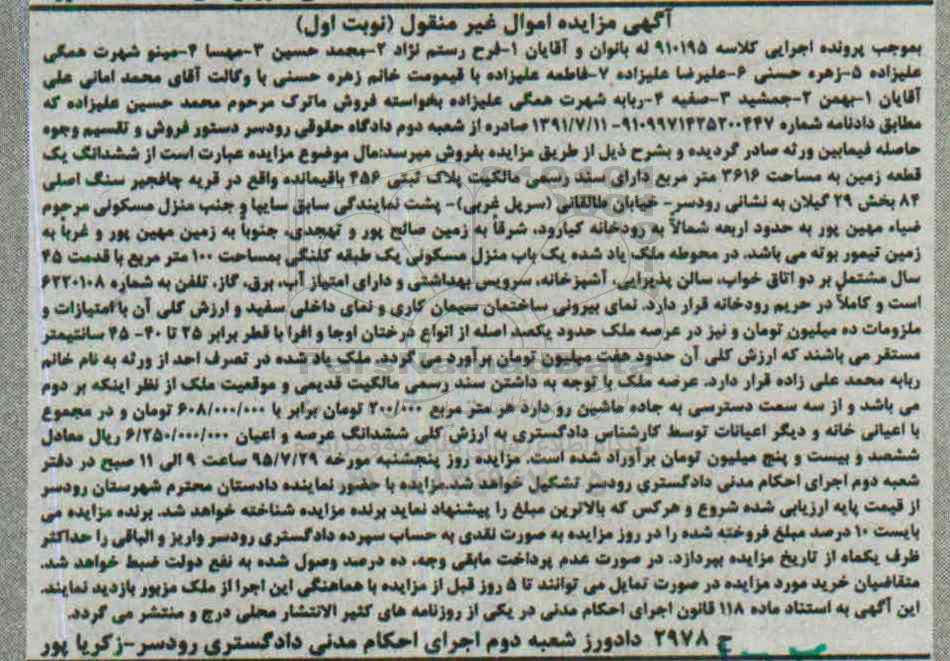 آگهی مزایده اموال غیر منقول (نوبت اول)
بموجب پرونده اجرایی کلاسه ۹۱۰۱۹۵ له بانوان و آقایان ۱-فرح رستم نژاد ۲-محمد حسین ۳-مهسا ۴-مینو شهرت همگی
علیزاده ۵-زهره حسنی ۶-علیرضا علیزاده ۷-فاطمه علیزاده با قیمومت خانم زهره حسنی با وکالت آقای محمد امانی علی
آقایان ۱-بهمن ۲-جمشید ۳-صفیه ۴-ربابه شهرت همگی علیزاده بخواسته فروش ماترک مرحوم محمد حسین علیزاده که
مطابق دادنامه شماره ۹۱۰۹۹۷۱۴۲۵۲۰۰۴۴۷- ۱۳۹۱/۷/۱۱ صادره از شعبه دوم دادگاه حقوقی رودسر دستور فروش و تقسیم وجوه
حاصله فیمابین ورثه صادر گردیده و بشرح ذیل از طریق مزایده بفروش میرسد:مال موضوع مزایده عبارت است از ششدانگ یک
قطعه زمین به مساحت ۳۶۱۶ متر مربع دارای سند رسمی مالکیت پلاک ثبتی ۴۵۶ باقیمانده واقع در قریه چافجیر سنگ اصلی
۸۴ بخش ۲۹ گیلان به نشانی رودسر- خیابان طالقانی (سرپل غربی)- پشت نمایندگی سابق سایپا و جنب منزل مسکونی مرحوم
ضیاء مهین پور به حدود اربعه شمالاً به رودخانه کیارود، شرقاً به زمین صالح پور و تهجدی، جنوباً به زمین مهین پور و غرباً به
زمین تیمور بوته می باشد. در محوطه ملک یاد شده یک باب منزل مسکونی یک طبقه کلنگی بمساحت ۱۰۰ متر مربع با قدمت ۴۵
سال مشتمل بر دو اتاق خواب، سالن پذیرایی، آشپزخانه، سرویس بهداشتی و دارای امتیاز آب، برق، گاز، تلفن به شماره ۶۲۲۰۱۰۸
است و کاملاً در حریم رودخانه قرار دارد. نمای بیرونی ساختمان سیمان کاری و نمای داخلی سفید و ارزش کلی آن با امتیازات و
ملزومات ده میلیون تومان و نیز در عرصه ملک حدود یکصد اصله از انواع درختان اوجا و افرا با قطر برابر ۲۵ تا ۴۰- ۴۵ سانتیمتر
مستقر می باشند که ارزش کلی آن حدود هفت میلیون تومان برآورد می گردد. ملک یاد شده در تصرف احد از ورثه به نام خانم
ربابه محمد علی زاده قرار دارد. عرصه ملک با توجه به داشتن سند رسمی مالکیت قدیمی و موقعیت ملک از نظر اینکه بر دوم
می باشد و از سه سمت دسترسی به جاده ماشین رو دارد هر متر مربع ۲۰۰/۰۰۰ تومان برابر با ۶۰۸/۰۰۰/۰۰۰ تومان و در مجموع
با اعیانی خانه و دیگر اعیانات توسط کارشناس دادگستری به ارزش کلی ششدانگ عرصه و اعیان ۶/۲۵۰/۰۰۰/۰۰۰ ریال معادل
ششصد و بیست و پنج میلیون تومان برآوراد شده است. مزایده روز پنجشنبه مورخه ۹۵/۷/۲۹ ساعت ۹ الی ۱۱ صبح در دفتر
شعبه دوم اجرای احکام مدنی دادگستری رودسر تشکیل خواهد شد.مزایده با حضور نماینده دادستان محترم شهرستان رودسر
از قیمت پایه ارزیابی شده شروع و هرکس که بالاترین مبلغ را پیشنهاد نماید برنده مزایده شناخته خواهد شد. برنده مزایده می
بایست ۱۰ درصد مبلغ فروخته شده را در روز مزایده به صورت نقدی به حساب سپرده دادگستری رودسر واریز و الباقی را حداکثر
ظرف یکماه از تاریخ مزایده بپردازد. در صورت عدم پرداخت مابقی وجه، ده درصد وصول شده به نفع دولت ضبط خواهد شد.
متقاضیان خرید مورد مزایده در صورت تمایل می توانند تا ۵ روز قبل از مزایده با هماهنگی این اجرا از ملک مزبور بازدید نمایند.
این آگهی به استناد ماده ۱۱۸ قانون اجرای احکام مدنی در یکی از روزنامه های کثیر الانتشار محلی درج و منتشر می گردد.
ج ۲۹۷۸ دادورز شعبه دوم اجرای احکام مدنی دادگستری رودسر-زکریا پور